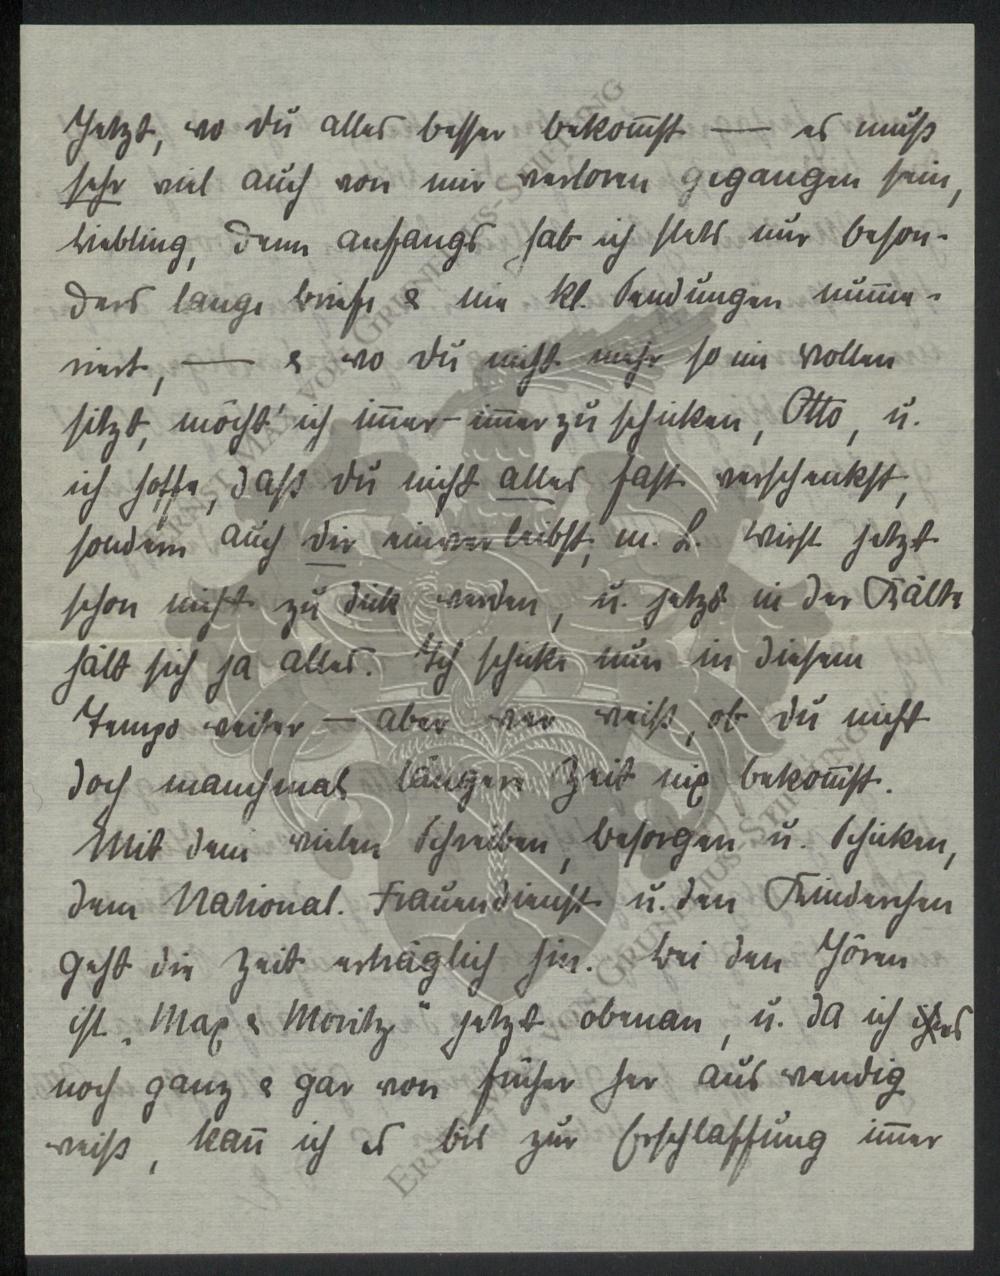 Jetzt, wo du alles besser bekom̅st — es muß
sehr viel auch von mir verloren gegangen sein,
Liebling, denn anfangs hab ich stets nur beson-
ders lange Briefe & nie kl. Sendungen num̅e-
riert, — & wo du nicht mehr so im Vollen
sitzt, möcht' ich im̅er-im̅erzu schicken, Otto, u.
ich hoffe, daß du nicht alles fast verschenkst,
sondern auch dir einverleibst, m. L. Wirst jetzt
schon nicht zu dick werden, u. jetzt in der Kälte
hält sich ja alles. Ich schicke nun in diesem
Tempo weiter — aber wer weiß, ob du nicht
doch manchmal längere Zeit nix bekom̅st.
Mit dem vielen Schreiben, Besorgen u. Schicken,
dem National. Frauendienst u. den Kinderchen
geht die Zeit erträglich hin. Bei den Hören
ist „Max & Moritz" jetzt obenan, u. da ich es
noch ganz & gar von früher her auswendig
weiß, kan̅ ich es bis zur Erschlaffung im̅er
ERNST MAX VON GRUNELIUS-STIFTUNG
ERNST MAX VON GRUNELIUS-STIFTUNG